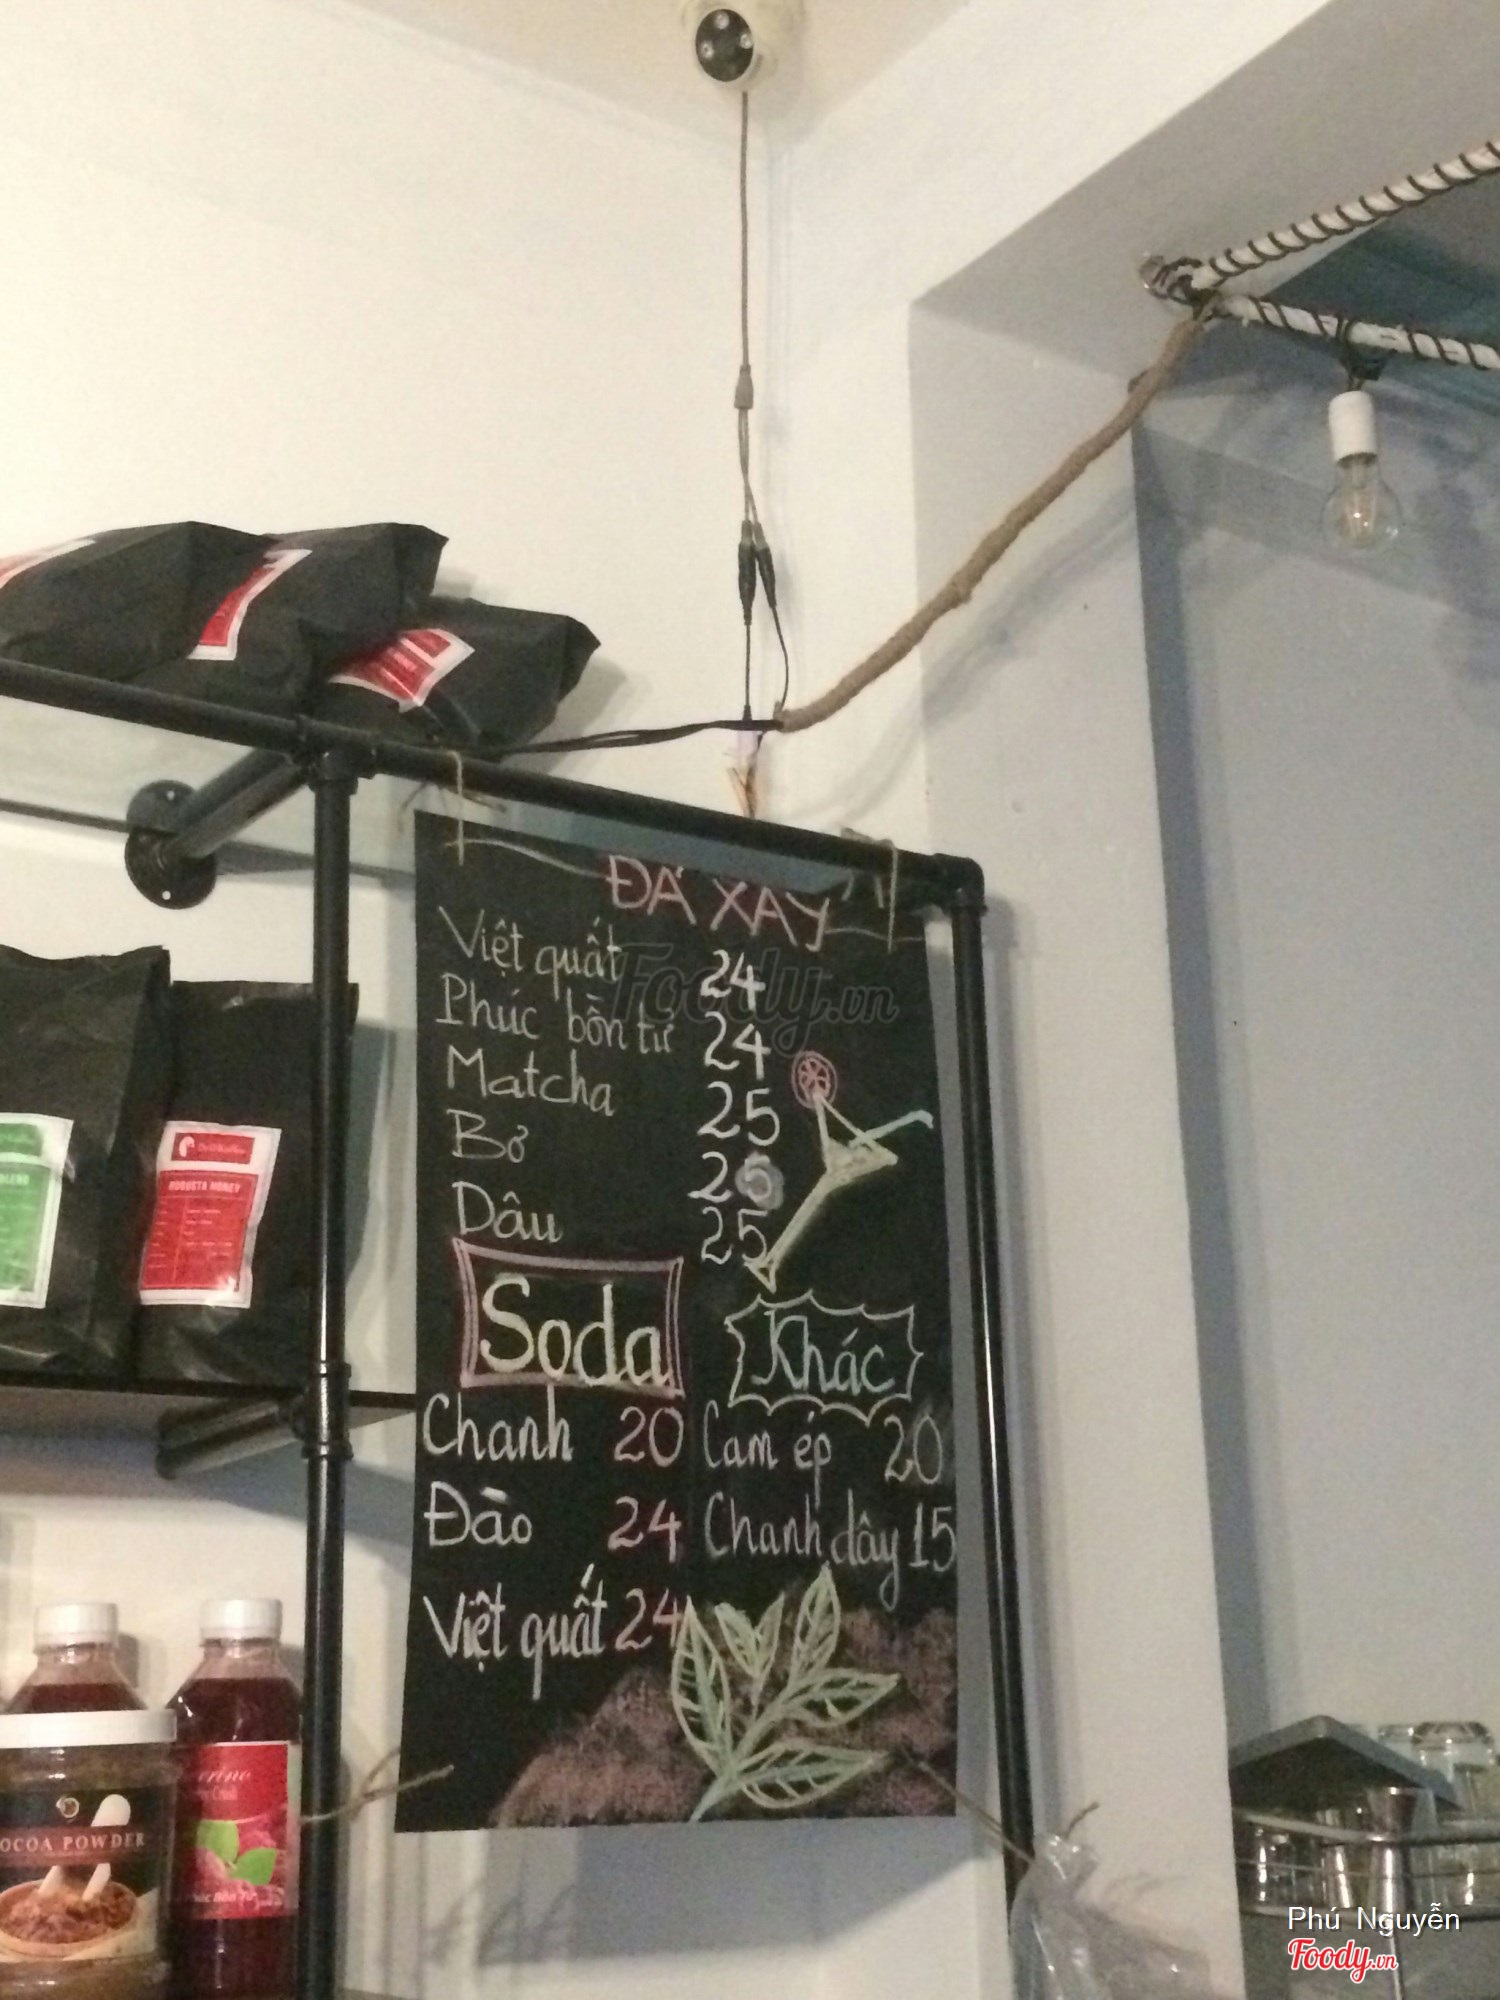 ĐÁ XAY
Việt quất 24
Phúc bồn tử 24
Matcha 25
Bơ 25
Dâu 25
Soda
Chanh 20
Đào 24
Việt quất 24
Khác
Cam ép 20
Chanh dây 15
Foody.vn
ROBUSTA HONEY
OCOA POWDER
Phú Nguyễn
Foody.vn